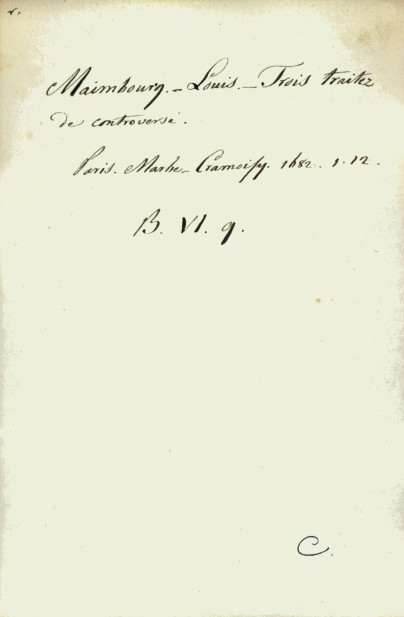 Maimbourg. - Louis. - Trois traitez
de controverse.
Paris. Marbe-Cramoisy. 1682. 1. 12.
B. VI. 9.
C.